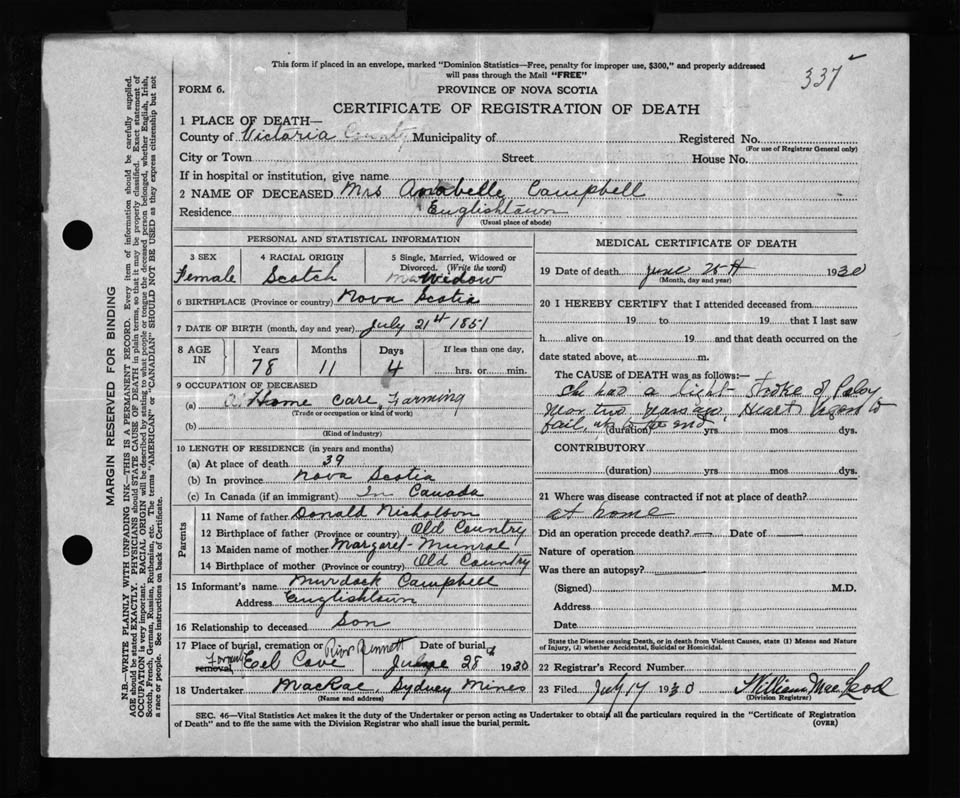 This form if placed in an envelope, marked "Dominion Statistics—Free, penalty for improper use, $300," and properly addressed
will pass through the Mail "FREE"
337
FORM 6.
PROVINCE OF NOVA SCOTIA
CERTIFICATE OF REGISTRATION OF DEATH
1 PLACE OF DEATH—
County of Victoria County Municipality of Registered No.
(For use of Registrar General only)
City or Town Street House No.
If in hospital or institution, give name
2 NAME OF DECEASED Mrs Annabelle Campbell
Residence Englishtown
(Usual place of abode)
PERSONAL AND STATISTICAL INFORMATION
3 SEX 4 RACIAL ORIGIN 5 Single, Married, Widowed or
Divorced. (Write the word)
Female Scotch Widow
6 BIRTHPLACE (Province or country) Nova Scotia
7 DATE OF BIRTH (month, day and year) July 21st 1851
8 AGE IN Years Months Days If less than one day,
78 11 4 hrs. or min.
9 OCCUPATION OF DECEASED
(a) at Home Care, Farming
(Trade or occupation or kind of work)
(b)
(Kind of industry)
10 LENGTH OF RESIDENCE (in years and months)
(a) At place of death 39
(b) In province Nova Scotia
(c) In Canada (if an immigrant) In Canada
Parents
11 Name of father Donald Nicholson
12 Birthplace of father (Province or country) Old Country
13 Maiden name of mother Margaret Munroe
14 Birthplace of mother (Province or country) Old Country
15 Informant's name Murdock Campbell
Address Englishtown
16 Relationship to deceased Son
17 Place of burial, cremation or River Bennett Date of burial
removal Eel Cove June 28 1930
18 Undertaker MacRae, Sydney Mines
(Name and address)
MEDICAL CERTIFICATE OF DEATH
19 Date of death June 25th 1930
(Month, day and year)
20 I HEREBY CERTIFY that I attended deceased from
19 to 19 that I last saw
h alive on 19 and that death occurred on the
date stated above, at m.
The CAUSE OF DEATH was as follows:—
had a light Stroke of Palsy
Near two years ago, Heart began to
fail, the end
(duration) yrs mos dys.
CONTRIBUTORY
(duration) yrs mos dys.
21 Where was disease contracted if not at place of death?
at home
Did an operation precede death? — Date of —
Nature of operation
Was there an autopsy?
(Signed) M.D.
Address
Date
State the Disease causing Death, or in death from Violent Causes, state (1) Means and Nature
of Injury, (2) whether Accidental, Suicidal or Homicidal.
22 Registrar's Record Number
23 Filed July 17 1930 William MacLeod
(Division Registrar)
SEC. 46—Vital Statistics Act makes it the duty of the Undertaker or person acting as Undertaker to obtain all the particulars required in the "Certificate of Registration
of Death" and to file the same with the Division Registrar who shall issue the burial permit. (OVER)
MARGIN RESERVED FOR BINDING
N.B.—WRITE PLAINLY WITH UNFADING INK—THIS IS A PERMANENT RECORD. Every item of information should be carefully supplied.
AGE should be stated EXACTLY. PHYSICIANS should STATE CAUSE OF DEATH in plain terms, so that it may be properly classified. Exact statement of
OCCUPATION is very important. RACIAL ORIGIN will be described by stating to what people or tongue the deceased person belonged, whether English, Irish,
Scotch, French, German, Russian, Ruthenian, etc. The terms "AMERICAN" or "CANADIAN" SHOULD NOT BE USED as they express citizenship but not
a race or people. See instructions on back of Certificate.